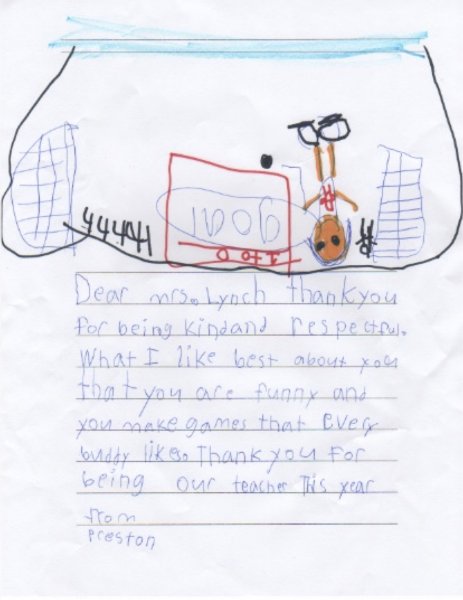 Dear mrs. Lynch thankyou
for being kindand respectful.
What I like best about you
that you are funny and
you make games that every
buddy likes. Thank you for
being our teacher This year
from
Preston